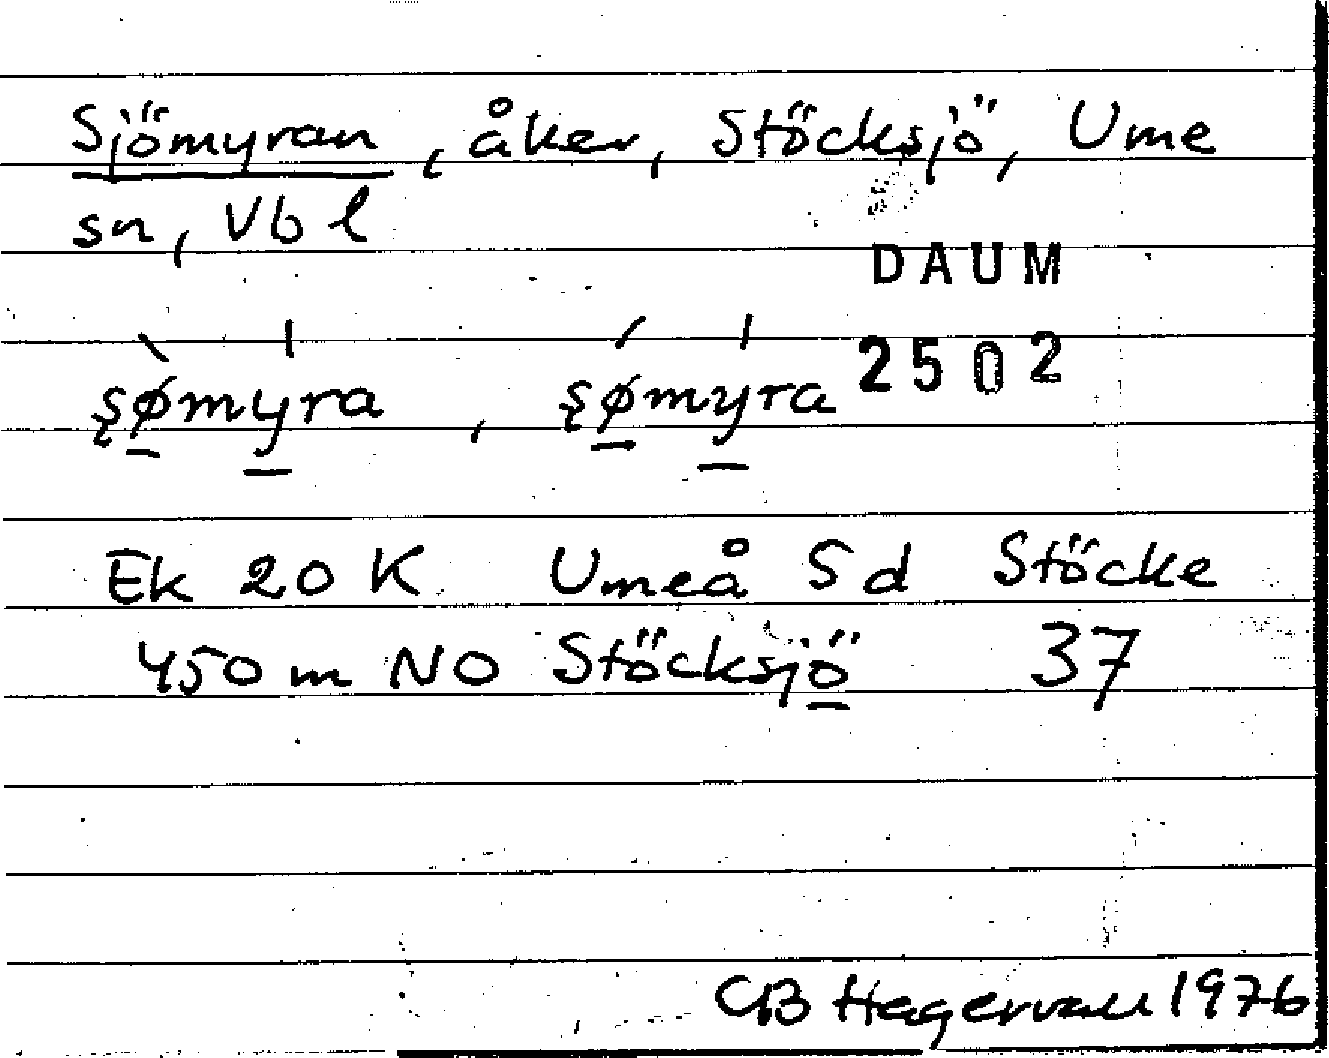 Sjömyran, åker, Stöcksjö, Ume
sn, Vb l
DAUM
2502
ʂø̠my̠ra, ʂø̠my̠ra
Ek 20 K Umeå Sd Stöcke
450 m NO Stöcksjö̠ 37
CB Hagervall 1976